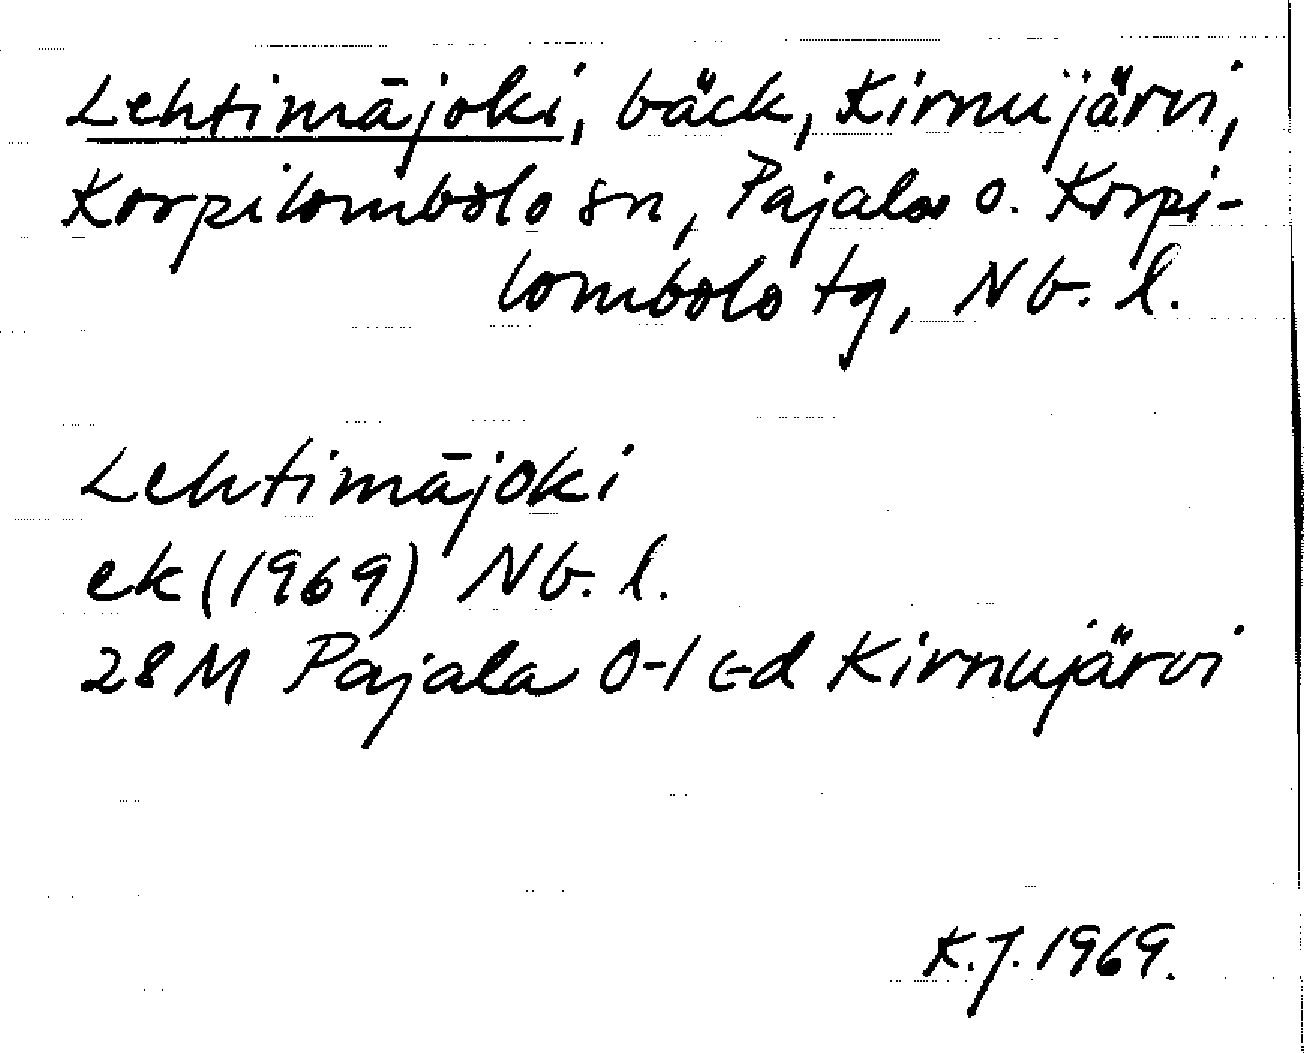 Lehtimäjoki, bäck, Kirnujärvi,
Korpilombolo sn, Pajala o. Korpi-
lombolo tg, Nb. l.
Lehtimäjoki
ek (1969) Nb. l.
28 M Pajala 0-1 c-d Kirnujärvi
K.J. 1969.